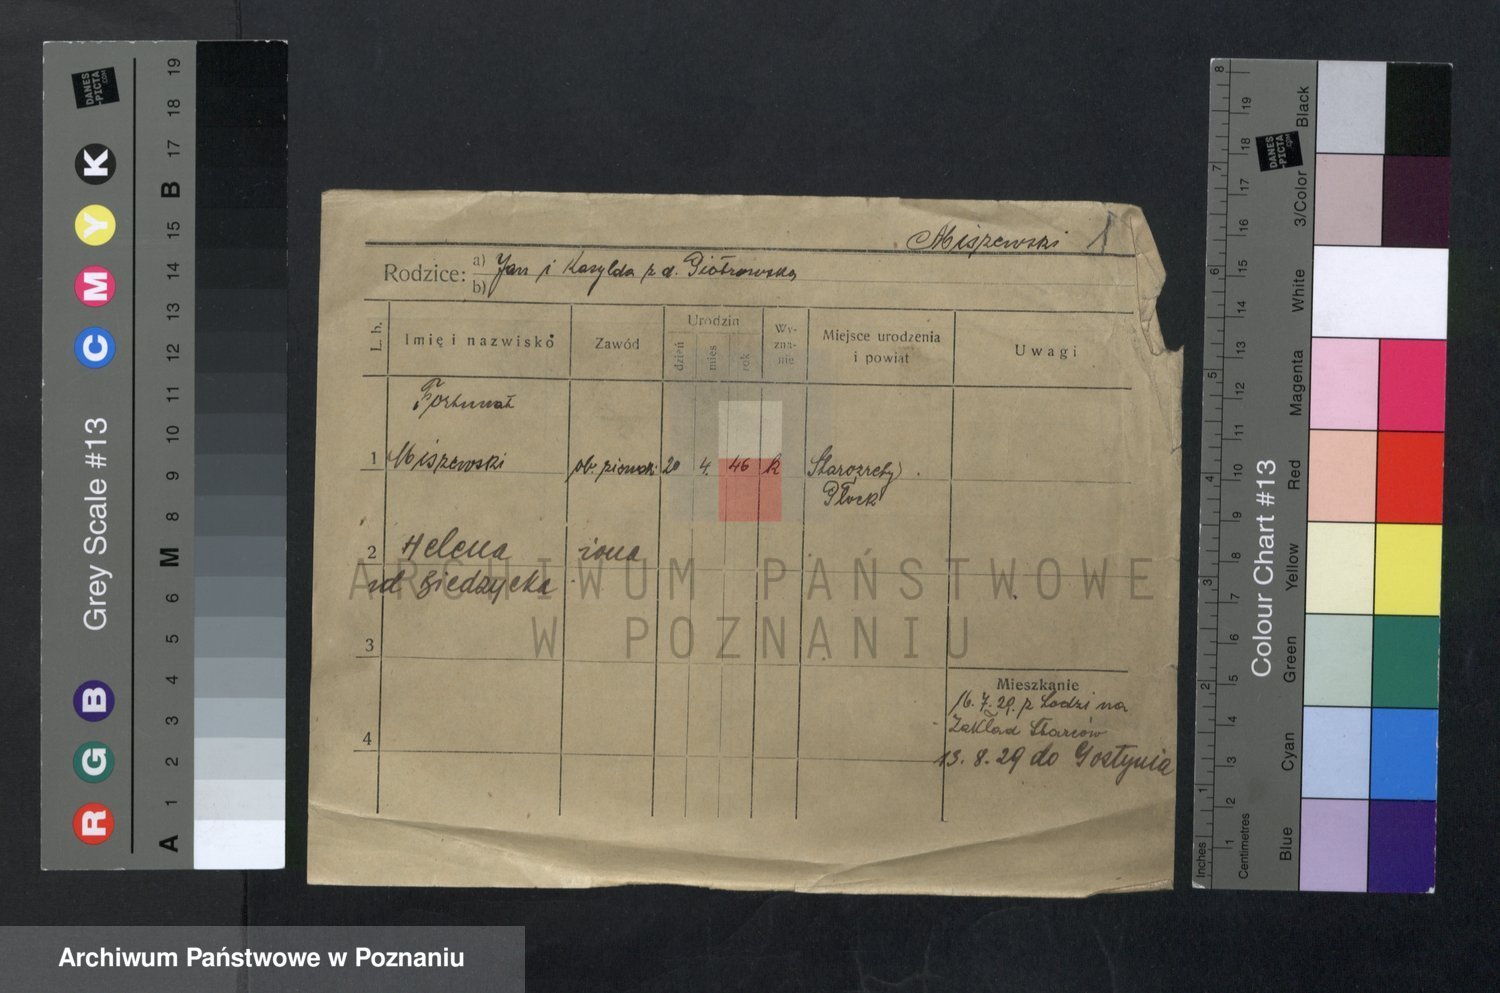 Miszewski 1
Rodzice: a) Jan i Kasylda z d. Piotrowska
b)
L. b.
Imię i nazwisko
Zawód
Urodzin
dzień
mies
rok
Wy-
zna-
nie
Miejsce urodzenia
i powiat
Uwagi
Fortunat
1 Miszewski ob. ziemski 20 4. 46 k Starozreby
Płock
2 Helena żona
3
4
Mieszkanie
16. 7. 29. z Łodzi na
Zakład Starców
13. 8. 29 do Gostynia
ARCHIWUM PAŃSTWOWE
W POZNANIU
Archiwum Państwowe w Poznaniu
Grey Scale #13
DANES
-PICTA
.COM
R G B C M Y K
A 1 2 3 4 5 6 M 8 9 10 11 12 13 14 15 B 17 18 19
Colour Chart #13
DANES
-PICTA
.COM
Blue
Cyan
Green
Yellow
Red
Magenta
White
3/Color
Black
Inches
1 2 3 4 5 6 7 8
Centimetres
1 2 3 4 5 6 7 8 9 10 11 12 13 14 15 16 17 18 19